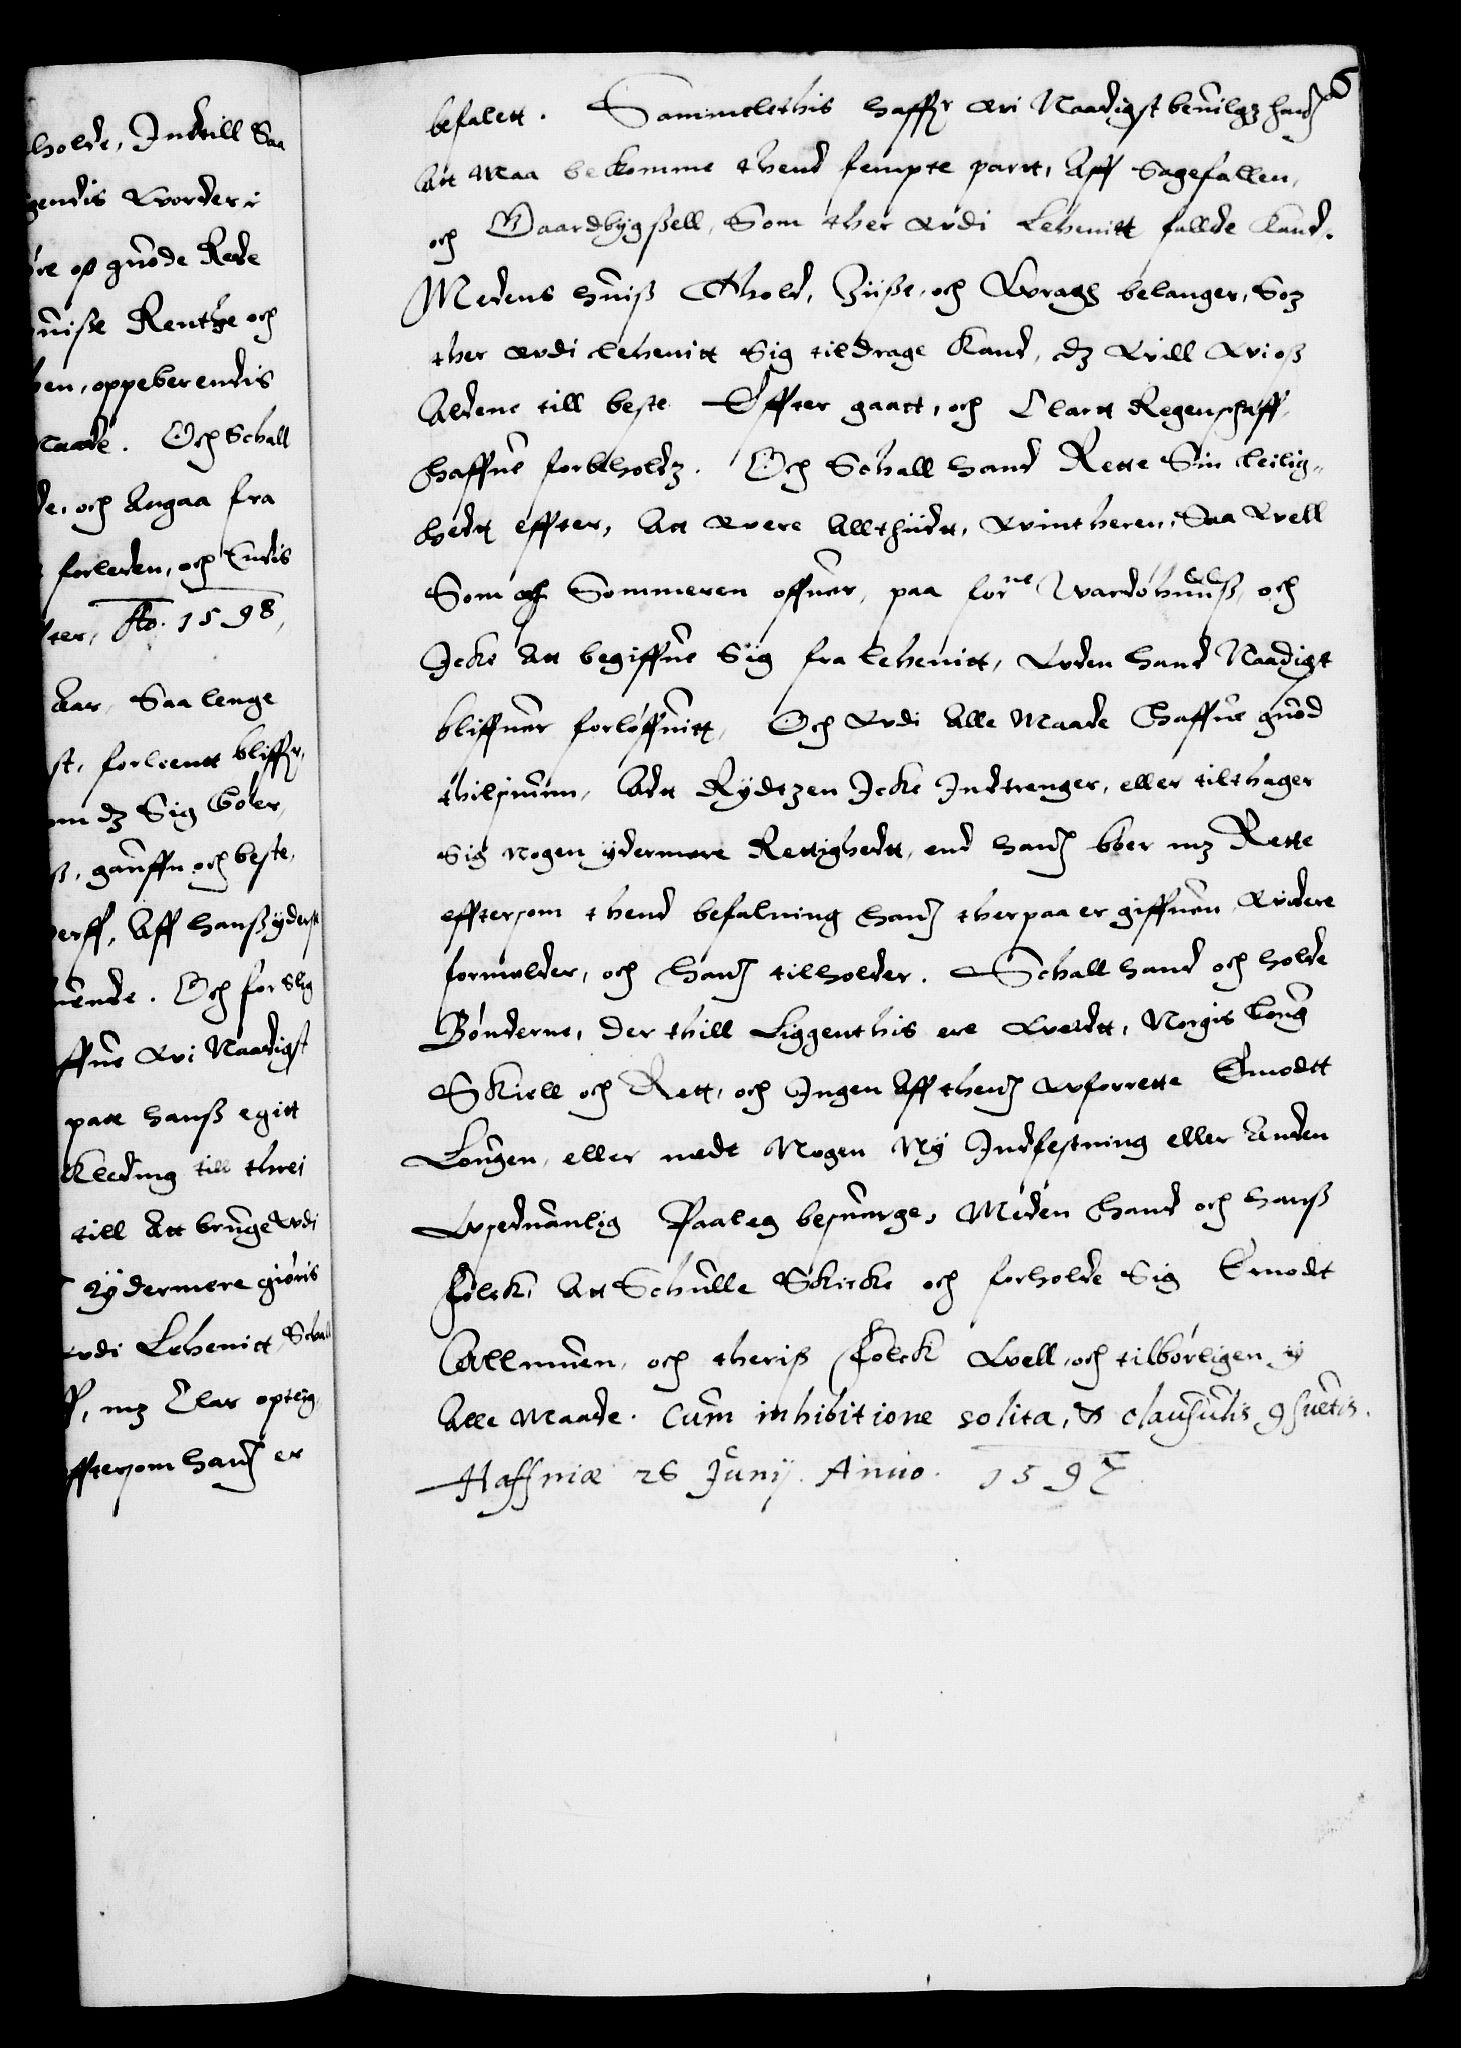 holde, Indtill Saa
gendis Worder i
re oß gunde Rede
uisse Renthe och
hen, oppeberendis
maade. Och Schall
de, och Angaa fra
forleden, och Endis
ter, Ao. 1598,
Aar, Saa lenge
st, forleentt bliffr,
om dz Sig bőer,
ß, gauffn och beste,
erff, Aff hanß yderste
uende. Och for Slig
ffue Wi Naadigst
paa hanß egitt
Kleding till threi
till Att bruge Wdi
ydermere giőris
Wdi Lehenitt, Schall
ff, mz Clar opteig
fftersom hand er
6
befalett. Sammelethis haffr Wi Naadigst beuilgz hand
Att Maa bekomme thend fempte partt, Aff Sagefallen,
och Gaardbygßell, Som ther Wdi Lehenitt fallde Kand.
Medens huiß Thold, Ziiße, och Wragh belanger, Som
ther Wdi lehenitt Sig tildrage Kand, dz Will Wi oß
Aldene till beste Effter gaatt, och Clartt Regenschaff,
haffue forbeholdz. Och Schall hand Rette Sin leilig-
hedtt effter, Att Were Allthiidtt, Wintheren, Saa Well
Som Sommeren offuer, paa forne Wardőhuuß, och
Icke Att begiffue Sig fra lehenitt, Wden hand Naadigst
bliffuer forlőffuitt, Och Wdi Alle Maade Haffue guod
thilsiuun, Adtt Rydtzen Icke Indtrenger, eller tilthager
Sig nogen ydermere Rettighedtt, end hand bőer mz Rette
efftersom thend befalning hand ther paa er giffuen Widere
formelder, och hand tilholder. Schall hand och holde
Bőnderne, der thill Liggenthis ere Werdtt, Norgis Loug
Skiell och Rett, och Ingen Aff thend Wforrette Emodtt
Lougen, eller medt Nogen Ny Indfestning eller Anden
Wseduanlig Paaleg besuerge, Meden Hand och hanß
Folck, Att Schulle Skicke och forholde Sig Emodt
Allmuen, och theriß Folck Well, och tilbőrligen y
Alle Maade. Cum inhibitione solita, & clausulis 9suetis.
Haffniæ 26 Junij. Anno. 1597